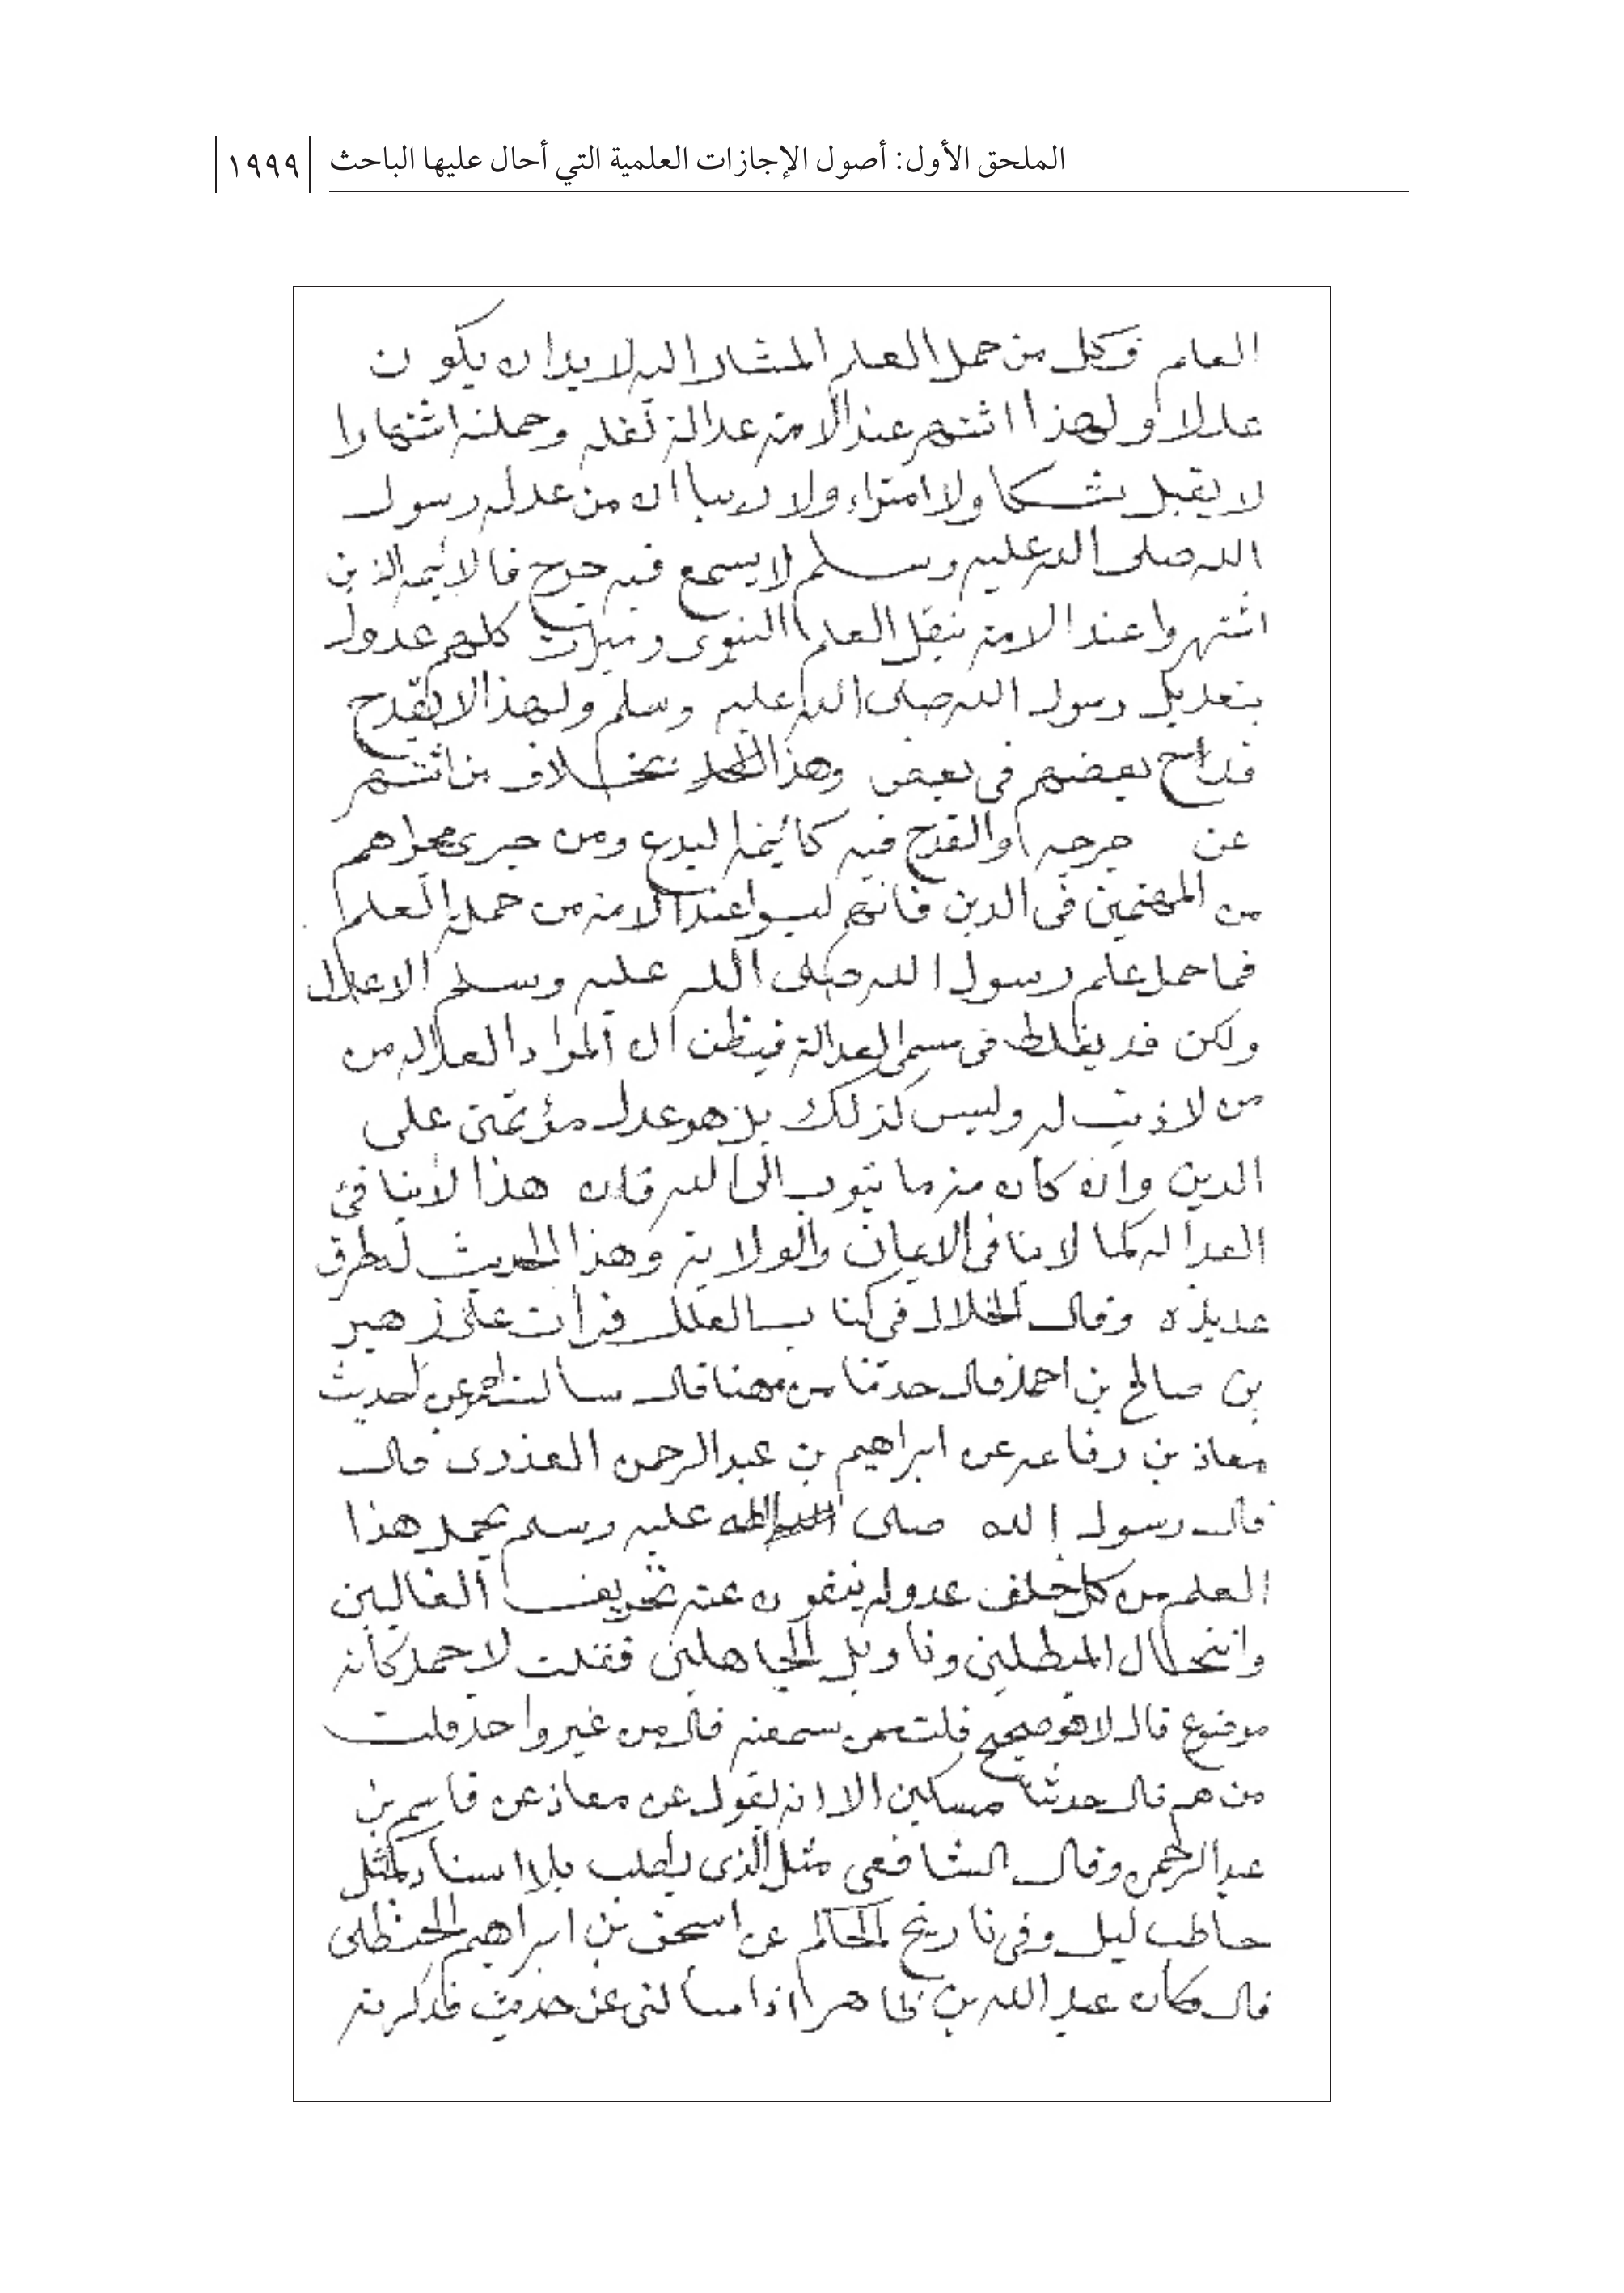 الملحق الأول: أصول الإجازات العلمية التي أحال عليها الباحث ١٩٩٩
العلم فكل من حمل العلم المشار اليه لا بد ان يكون
عدلا ولهذا اشتهر عند الامة عدالة نقله وحملته اشتهارا
لا يقبل شكا ولا امتراء ولا ريبا ان من عدله رسول
الله صلى الله عليه وسلم لا يسمع فيه جرح فالائمه الذين
اشتهروا عند الامة بنقل العلم النبوي وميراثه كلهم عدول
بتعديل رسول الله صلى الله عليه وسلم ولهذا لا يقدح
قدح بعضهم في بعض وهذا بخلاف من اشتهر
عن جرحه والقدح فيه كائمة البدع ومن جرى مجراهم
من المهتمين في الدين فانهم ليسوا عند الامة من حملة العلم
فما حمل علم رسول الله صلى الله عليه وسلم الا عدل
ولكن قد يغلط في مسمى العدالة فيظن ان المراد العدالة من
من لا ذنب له وليس كذلك بل هو عدل مؤتمن على
الدين وان كان منه ما يتوب الى الله فان هذا لا ينافي
العداله كما لا ينافي الايمان والولاية وهذا الحديث له طرق
عديدة وقال الخلال في كتاب العلل قرأت على زهير
بن صالح بن احمد قال حدثنا مهنا قال سالت احمد عن حديث
معاذ بن رفاعه عن ابراهيم بن عبد الرحمن العذري قال
قال رسول الله صلى الله عليه وسلم يحمل هذا
العلم من كل خلف عدوله ينفون عنه تحريف الغالين
وانتحال المبطلين وتاويل الجاهلين فقلت لاحمد كأنه
موضوع قال لا هو صحيح قلت ممن سمعته قال من غير واحد قلت
من هم قال حدثنا مسكين الا انه يقول عن معاذ عن قاسم بن
عبد الرحمن وقال الشافعي مثل الذي يطلب بلا اسناد كمثل
حاطب ليل وفي تاريخ الحاكم عن اسحق بن ابراهيم الحنظلي
قال كان عبد الله بن طاهر اذا سالني عن حديث فذكرته